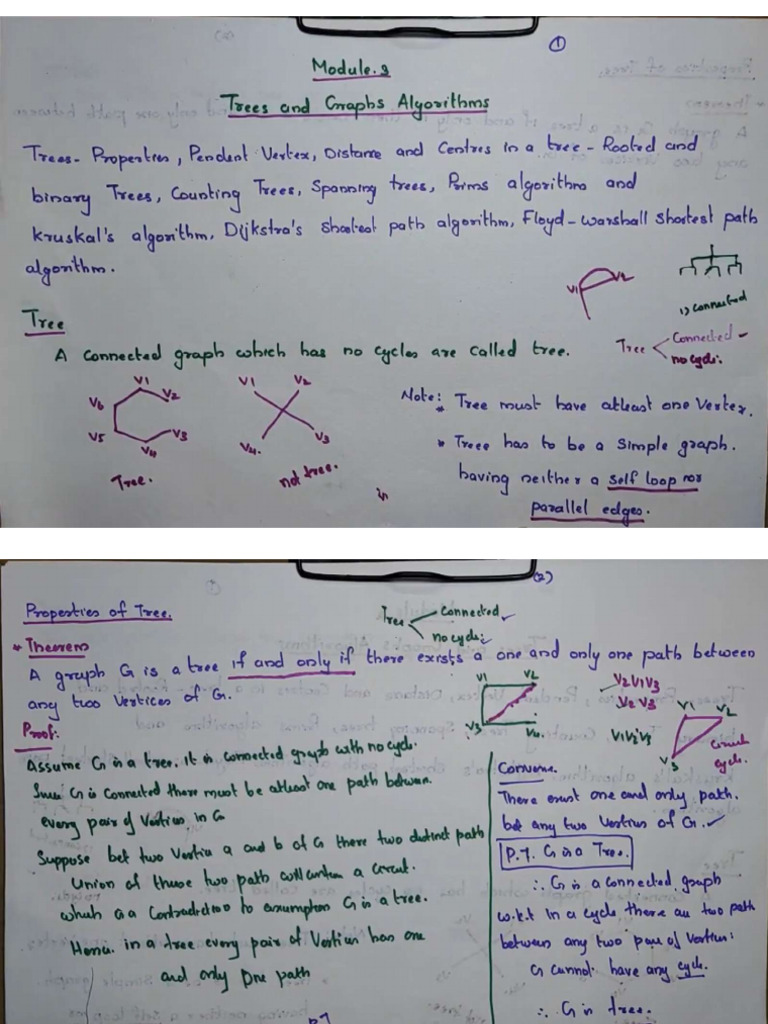 ①
Module. 3
Trees and Graphs Algorithms
Trees - Properties, Pendent Vertex, Distance and Centres in a tree - Rooted and
binary Trees, Counting Trees, Spanning trees, Prims algorithm and
Kruskal's algorithm, Dijkstra's shortest path algorithm, Floyd-Warshall shortest path
algorithm.
V1 V2
1) connected
Tree
A connected graph which has no cycles are called tree.
Tree Connected
no cycle.
V1 V2 V6 V5 V3 V4
Tree.
V1 V2 V4. V3
not tree.
Note: * Tree must have atleast one Vertex.
* Treee has to be a simple graph.
having neither a self loop nor
parallel edges.
(2)
Properties of Tree.
Tree Connected
no cycle.
* Theorem
A graph G is a tree if and only if there exists a one and only one path between
any two Vertices of G.
V1 V2 V3 V4.
V2 V1 V3
V2 V3
V1 V2 V3
V1 V2 V3
cycle.
Proof:
Assume G is a tree. It is connected graph with no cycle.
Since G is connected there must be atleast one path between
every pair of Vertices in G
Suppose bet two Vertices a and b of G there two distinct path
Union of these two path will contain a circuit.
which is a contradiction to assumption G is a tree.
Hence in a tree every pair of Vertices has one
and only one path
Converse.
There exist one and only path.
bet any two Vertices of G.
P.T. G is a Tree.
∴ G is a connected graph
w.k.t in a cycle there are two path
between any two pair of Vertices:
G cannot have any cycle.
∴ G is tree.